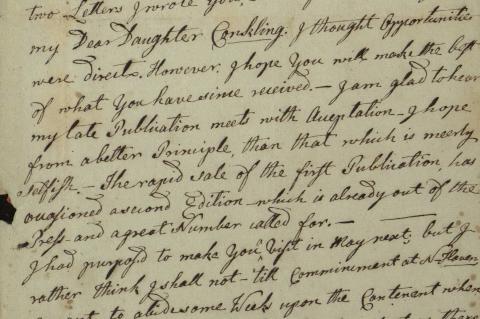 two Letters I wrote You,
my Dear Daughter Conskling. I thought Opportunities
were direct. However, I hope You will make the best
of what You have since received. — I am glad to hear
my late Publication meets with Acceptation — I hope
from a better Principle, than that which is meerly
selfish. — The rapid sale of the first Publication, has
occasioned a second Edition — which is already out of the
Press — and a great Number called for. —
I had purposd to make You a Visit in May next, but I
rather think I shall not — till Commincment at N. Haven
to abide some Weeks upon the Contenant when